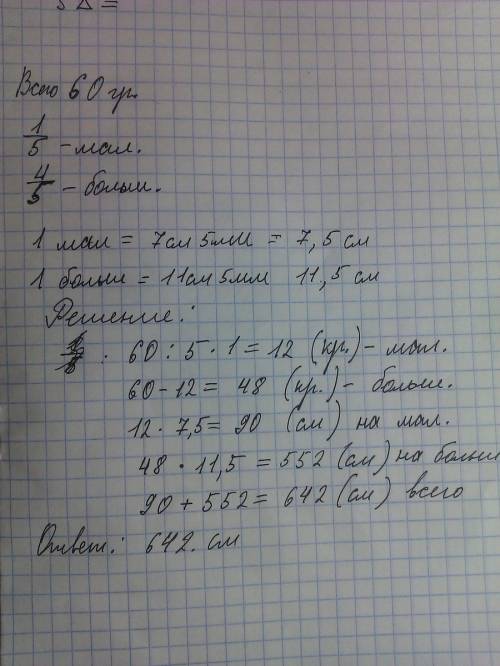 5 Δ =
Всего 60 гр.
1/5 - мал.
4/5 - больш.
1 мал = 7см 5мм = 7,5 см
1 больш = 11см 5мм 11,5 см
Решение:
60 : 5 · 1 = 12 (кр.) - мал.
60 - 12 = 48 (кр.) - больш.
12 · 7,5 = 90 (см) на мал.
48 · 11,5 = 552 (см) на больш
90 + 552 = 642 (см) всего
Ответ: 642. см